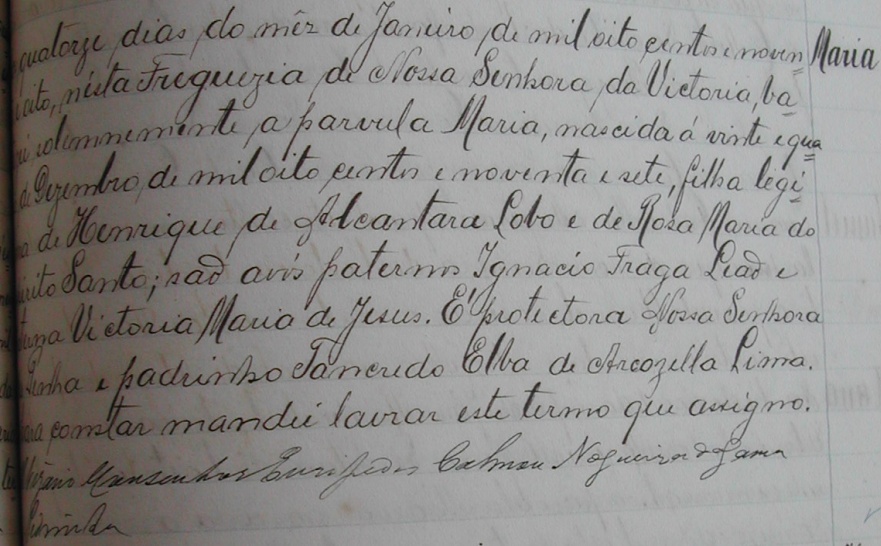 quatorze dias do mêz de Janeiro de mil oito centos e noven= Maria
oito, nésta Freguezia de Nossa Senhora da Victoria, ba=
solemnemente a parvula Maria, nascida á vinte e qua=
de Dezembro de mil oito centos e noventa e sete, filha legi=
a de Henrique de Alcantara Lobo e de Rosa Maria do
pirito Santo; saõ avós paternos Ignacio Fraga Leaõ e
Victoria Maria de Jesus. É protectora Nossa Senhora
da Penha e padrinho Tancredo Elba de Arcozella Lima.
para constar mandei lavrar este termo que assigno.
Vigario Euripedes Calmon Nogueira da Gama